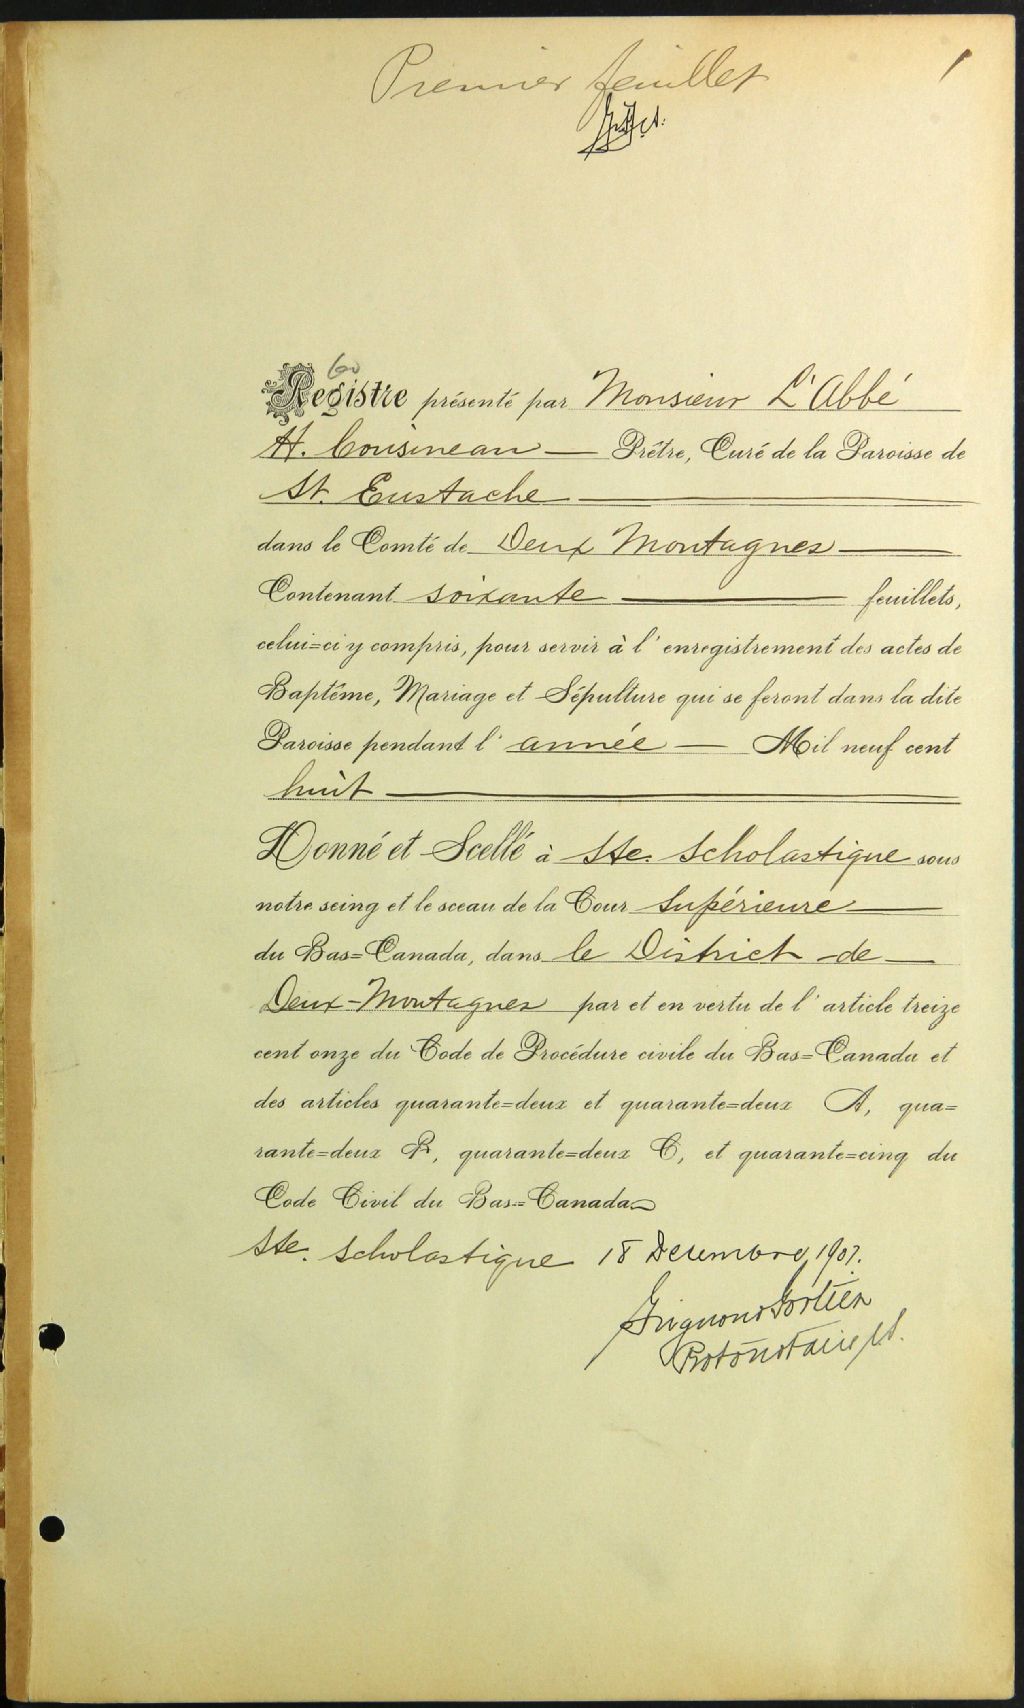 Premier feuillet
1
60
Registre présenté par Monsieur L'Abbé
H. Cousineau — Prêtre, Curé de la Paroisse de
St. Eustache
dans le Comté de Deux Montagnes
Contenant soixante feuillets,
celui=ci y compris, pour servir à l'enregistrement des actes de
Baptême, Mariage et Sépulture qui se feront dans la dite
Paroisse pendant l'année — Mil neuf cent
huit
Donné et Scellé à Ste. Scholastique sous
notre seing et le sceau de la Cour Supérieure
du Bas=Canada, dans le District de
Deux-Montagnes par et en vertu de l'article treize
cent onze du Code de Procédure civile du Bas=Canada et
des articles quarante=deux et quarante=deux A, qua=
rante=deux B, quarante=deux C, et quarante=cinq du
Code Civil du Bas=Canada
Ste. Scholastique 18 Décembre 1907.
Grignon & Fortier
Protonotaire